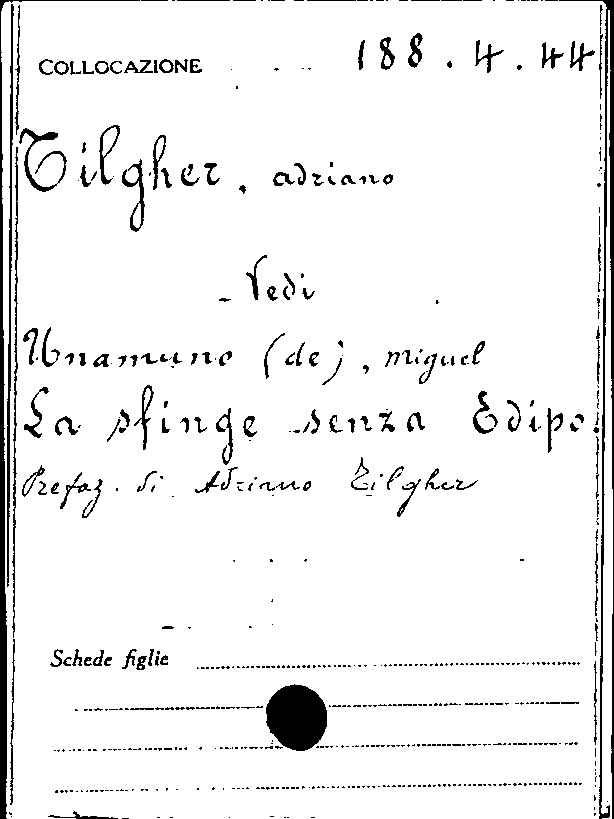 COLLOCAZIONE 188.4.44
Tilgher, Adriano
- Vedi
Unamuno (de), Miguel
La sfinge senza Edipo.
Prefaz. di Adriano Tilgher
Schede figlie